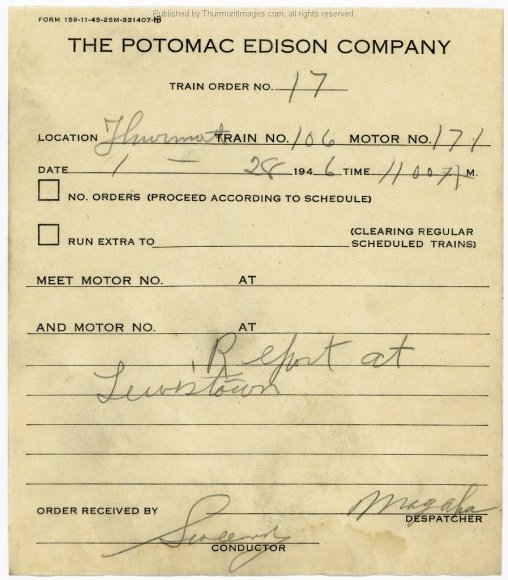 Published by ThurmontImages.com, all rights reserved.
FORM 159-11-45-25M-331407-
THE POTOMAC EDISON COMPANY
TRAIN ORDER NO. 17
LOCATION Thurmont TRAIN NO. 106 MOTOR NO. 171
DATE 1 - 28 1946 TIME 1100 A M.
NO. ORDERS (PROCEED ACCORDING TO SCHEDULE)
RUN EXTRA TO (CLEARING REGULAR SCHEDULED TRAINS)
MEET MOTOR NO. AT
AND MOTOR NO. AT
Report at
Lewistown
ORDER RECEIVED BY
Magaha
DESPATCHER
CONDUCTOR